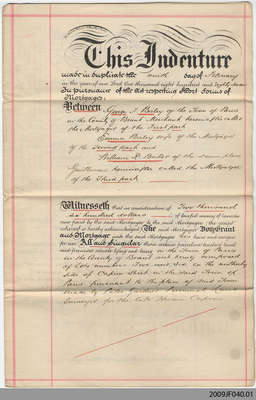 This Indenture
made in duplicate the day of February
in the year of our Lord One thousand eight hundred and
In pursuance of the Act respecting Short Forms of
Mortgages:
Between George of the Town of Paris
in the County of Brant hereinafter called
the Mortgagor of the First part
wife of the Mortgagor
of the Second part and
of the same place
Gentleman hereinafter called the Mortgagee
of the Third part
Witnesseth that in consideration of Two thousand
six hundred dollars of lawful money of Canada
now paid by the said Mortgagee to the said Mortgagor the receipt
whereof is hereby acknowledged The said Mortgagor Doth Grant
and Mortgage unto the said Mortgagee his heirs and assigns
for ever All and Singular those certain parcels or tracts of land
and premises situate lying and being in the Town of Paris
in the County of Brant and being composed
of Lots number Two and Six on the
side of Capron Street in the said Town of
Paris pursuant to the plan of said Town
made by
Surveyor for the late Hiram Capron
2009JF040.01